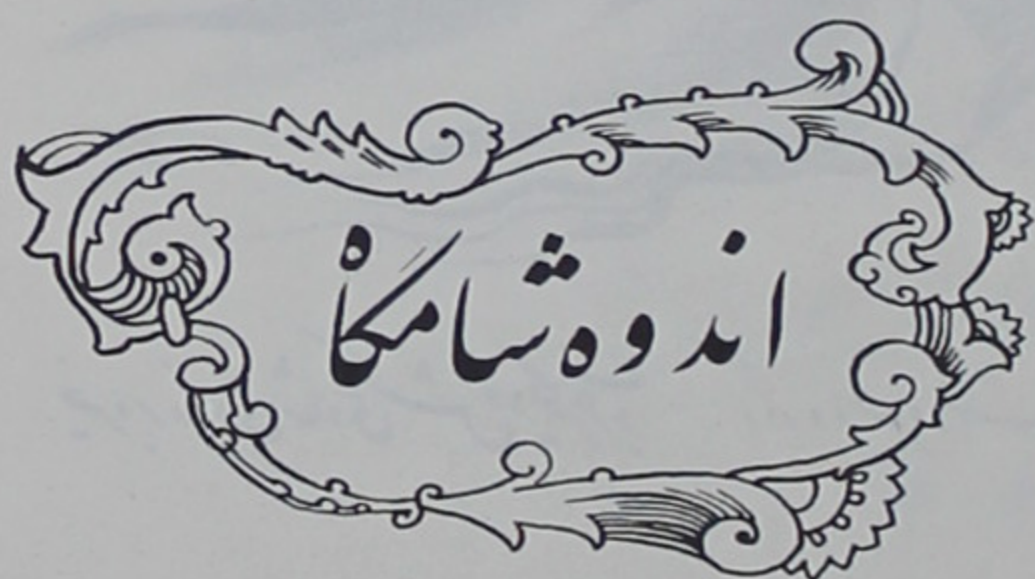 اندوه شامگاه